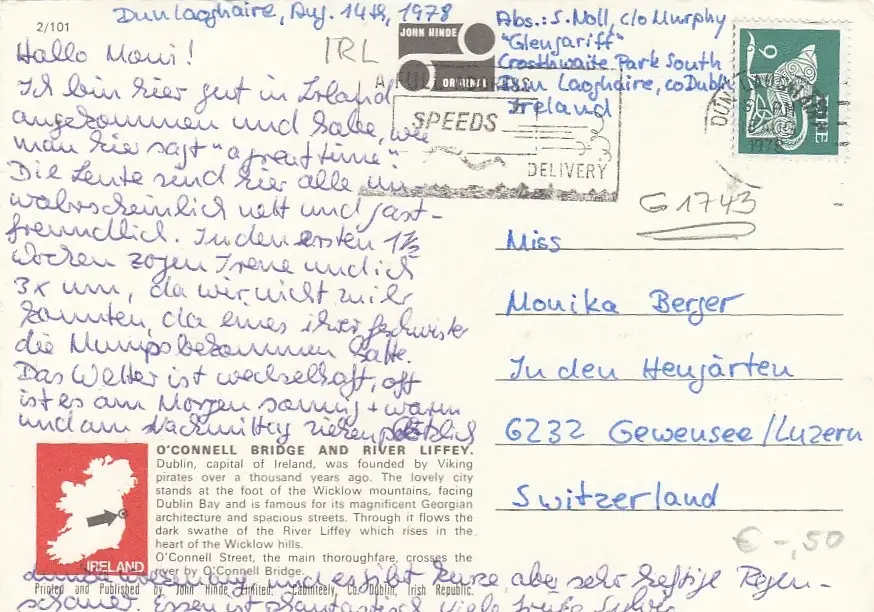 2/101
Dun Laoghaire, Aug. 14th, 1978
IRL
JOHN HINDE
ORIGINAL
Abs.: S. Noll, c/o Murphy
"Glengariff"
Crosthwaite Park South
Dun Laoghaire, co Dublin
Ireland
9
EIRE
1978
SPEEDS
DELIVERY
G 1743
Hallo Moni!
Ich bin hier gut in Irland
angekommen und habe, wie
man hier sagt "a great time"
Die Leute sind hier alle un
wahrscheinlich nett und gast-
freundlich. In den ersten 1½
Wochen zogen Irene und ich
3x um, da wir nicht zu ihr
konnten, da eines ihrer Geschwister
die Mumps bekommen hatte.
Das Wetter ist wechselhaft, oft
ist es am Morgen sonnig + warm
und am Nachmittag ziehen plötzlich
Miss
Monika Berger
In den Hengärten
6232 Geuensee/Luzern
Switzerland
€ -,50
O'CONNELL BRIDGE AND RIVER LIFFEY.
Dublin, capital of Ireland, was founded by Viking
pirates over a thousand years ago. The lovely city
stands at the foot of the Wicklow mountains, facing
Dublin Bay and is famous for its magnificent Georgian
architecture and spacious streets. Through it flows the
dark swathe of the River Liffey which rises in the
heart of the Wicklow hills.
O'Connell Street, the main thoroughfare, crosses the
river by O'Connell Bridge.
IRELAND
und es gibt kurze, aber sehr heftige Regen-
Printed and Published by John Hinde Limited, Cabinteely, Co. Dublin, Irish Republic.
schauer. Essen ist phantastisch, viele